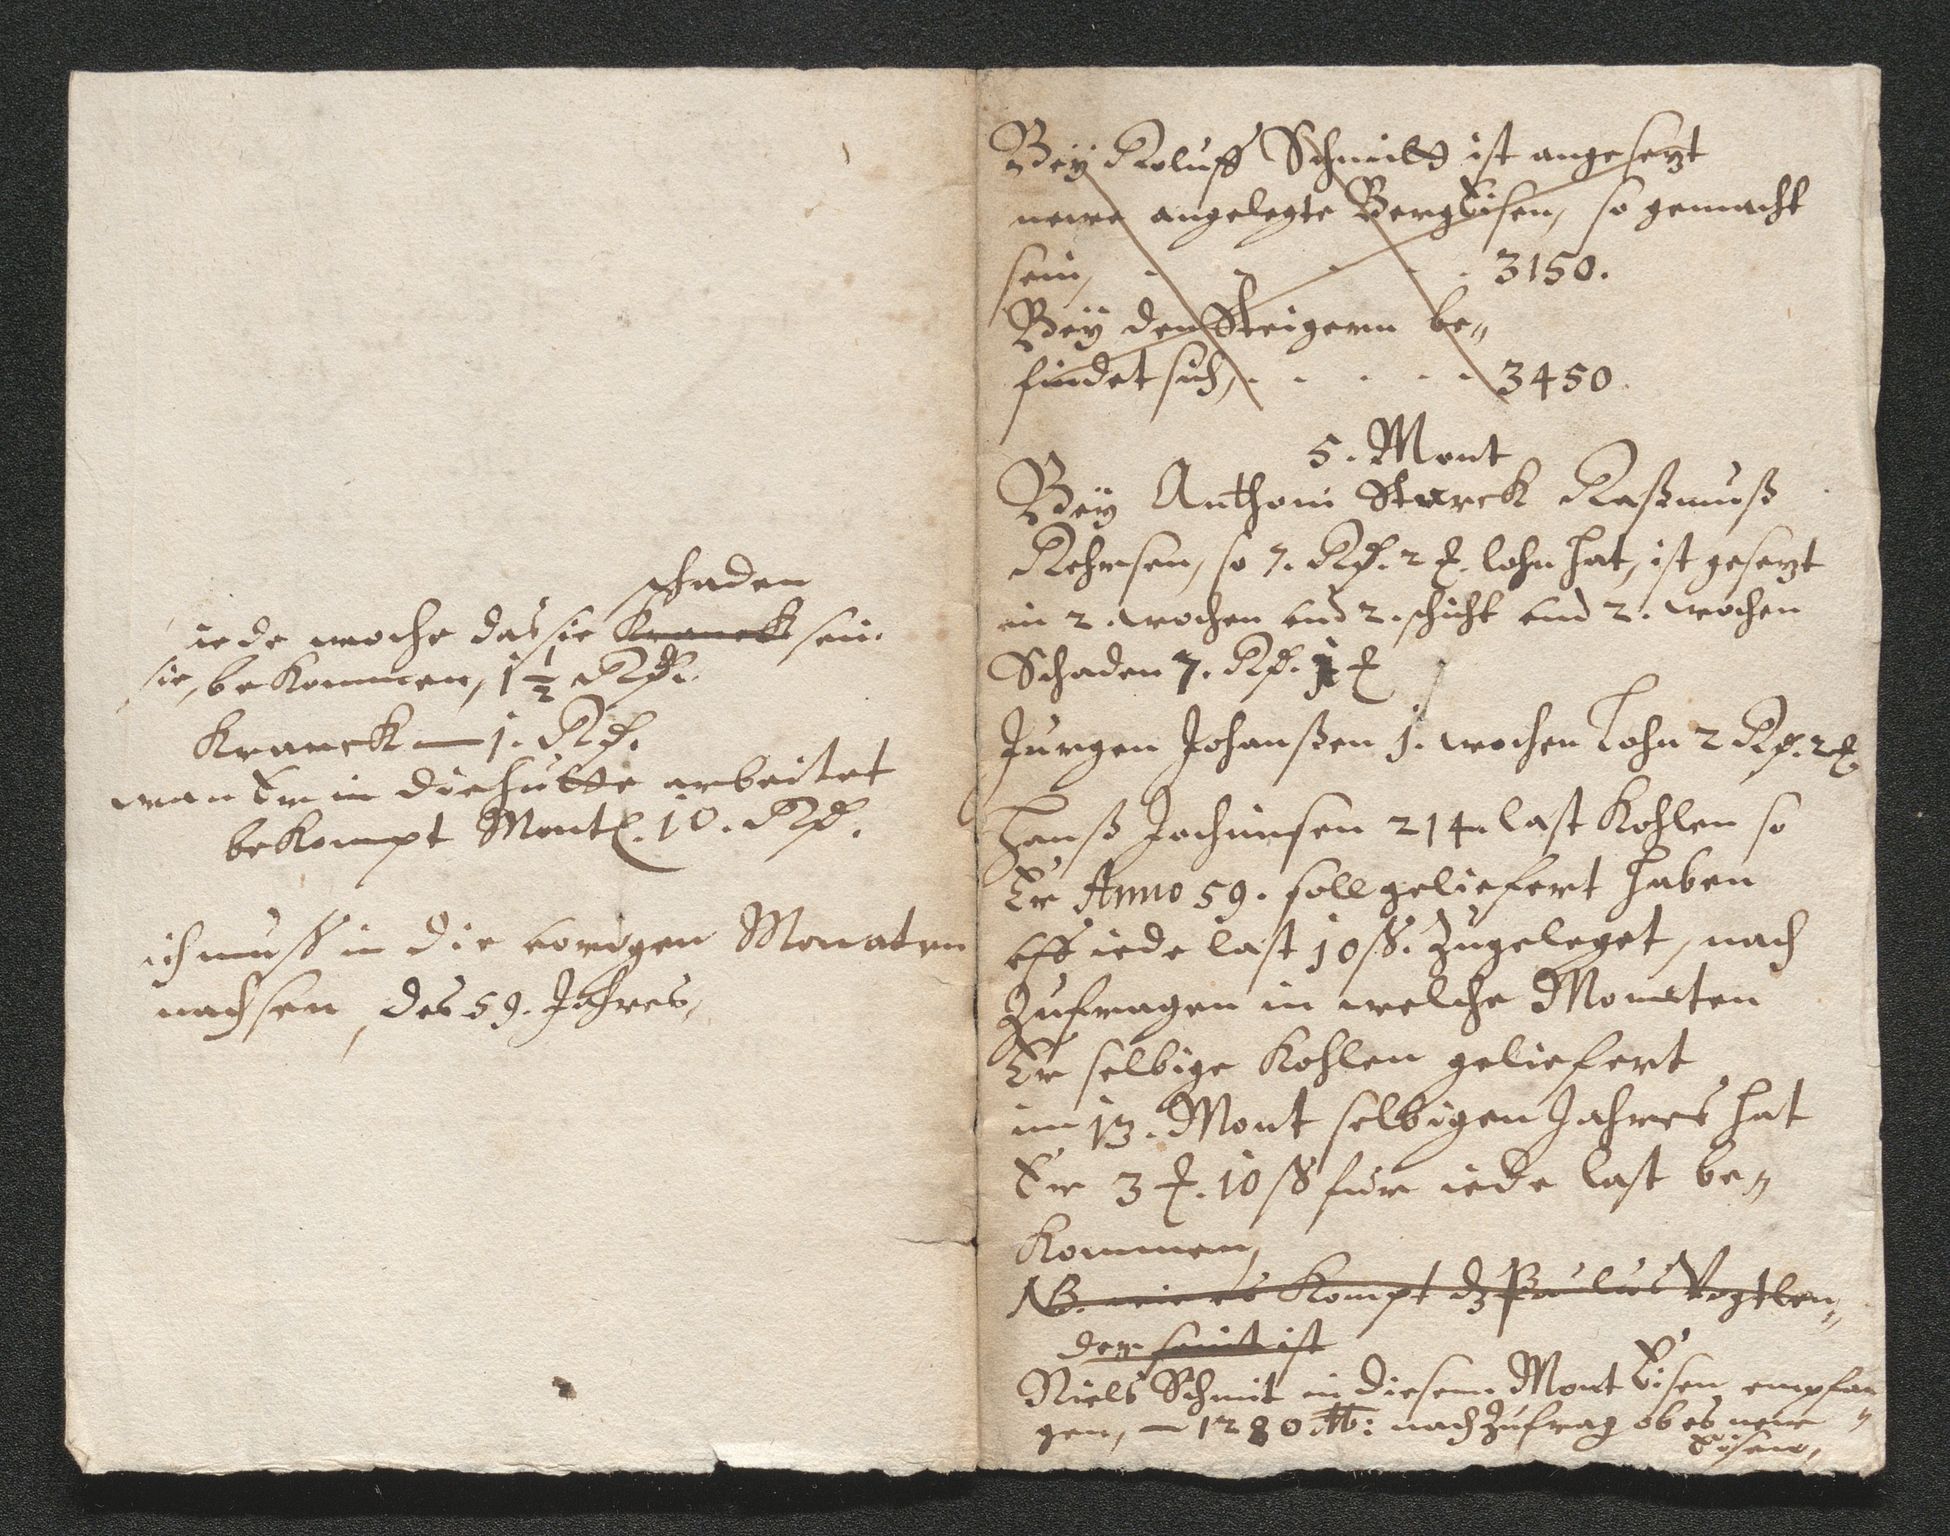 schaden
iede woche das sie Kranck sein.
sie, bekommen, 1 1/2 Rd.
Kranck — 1. Rd.
wan Er in die hutte arbeitet
bekompt Montl. 10. Rd.
ich muß in die vorigen Monaten
nachsen, des 59. Jahres,
Bey Roluff Schmidt ist angesezt
newe angelegte BergEisen, so gemacht
sein, . . . . . 3150.
Bey den Steigern be„
findet sich, . . . . . 3450.
5. Mont
Bey Anthoni Starck Raßmuß
Rehrsen, so 7. Rd. 2 lohn hat, ist gesezt
in 2. wochen und 2. schicht und 2. wochen
Schaden 7. Rd.
Jurgen Johanßen 1. wochen Lohn 2 Rd. 2
Hanß Jochimsen 214 last Kohlen so
Er Anno 59. soll geliefert haben
uff iede last 10 ß. Zugeleget, nach
Zufragen in welche Monaten
Er selbige Kohlen geliefert
im 13. Mont selbigen Jahres hat
Er 3 . 10 ß fur iede last be„
kommen,
NB. wie es kompt dz Paulus Vogtlen„
der ist
Niels Schmit in diesem Mont Eisen empfan„
gen, — 1280 lb: nach Zufrag ob es newe
Eisen,